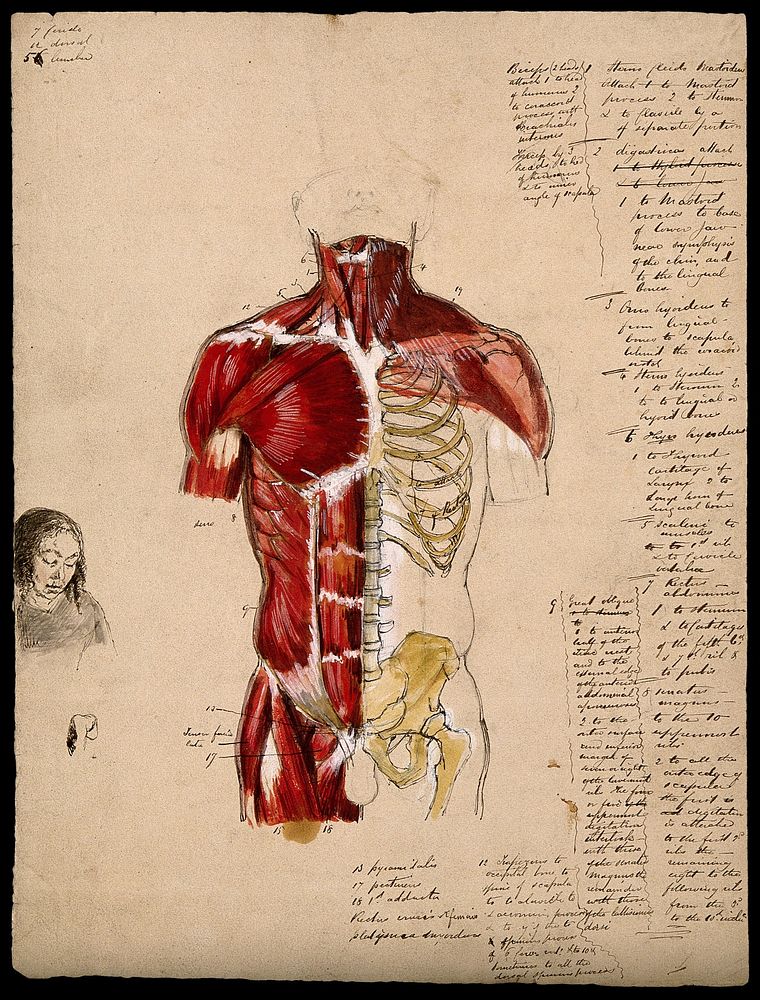 dorsal
5 lumbar
Biceps (2 heads)
attach 1 to head
of humerus 2
to coracoid
process with
Brachialis
internus
Triceps by 3
heads, 1 to head
of humerus
& to inferior
angle of scapula
1 Sterno cleido Mastoideus
attach 1 to Mastoid
process 2 to Sternum
& to clavicle by a
separate portion
2 digastricus attach
1 to Mastoid
process to base
of lower jaw
near symphysis
of the chin and
to the lingual
bones
3 Omo hyoideus to
from lingual
bones to scapula
behind the coracoid
4 Sterno hyoideus
1 to Sternum 2
to lingual or
hyoid bone
6 Thyro hyoideus
1 to Thyroid
cartilage of
Larynx 2 to
large horn of
lingual bone
5 Scaleni to
muscles
to 1st rib
& to cervicle
vertebra
7 Rectus
abdominis
1 to Sternum
2 to cartilages
of the fifth 6th
& 7th rib &
to pubis
8 serratus
magnus
to the 10
uppermost
ribs
2 to all the
outer edge of
scapula
the first is
digitation
is attached
to the first 2
ribs the
remaining
eight to the
following ribs
from the
to the 10th
9 Great oblique
1 to anterior
half of the
iliac crest
and to the
external edge
of the anterior
abdominal
aponeurosis
2 to the
outer surface
and inferior
margin of
seven or eight
of the lowermost
ribs the four
or five
uppermost
digitation
interlock
with those
of the serratus
magnus the
remainder
with those
of the latissimus
dorsi
12
3
5
6
1
4
19
serro 8
9
13
Tensor fascia
lata
17
15 18
13 pyramidalis
17 pectineus
18 1st adductor
Rectus cruris & femoris
platysma
12 Trapezius to
occipital bone to
spine of scapula
to clavicle to
acromion process
to the
spinous process
sometimes to all the
dorsal spinous process